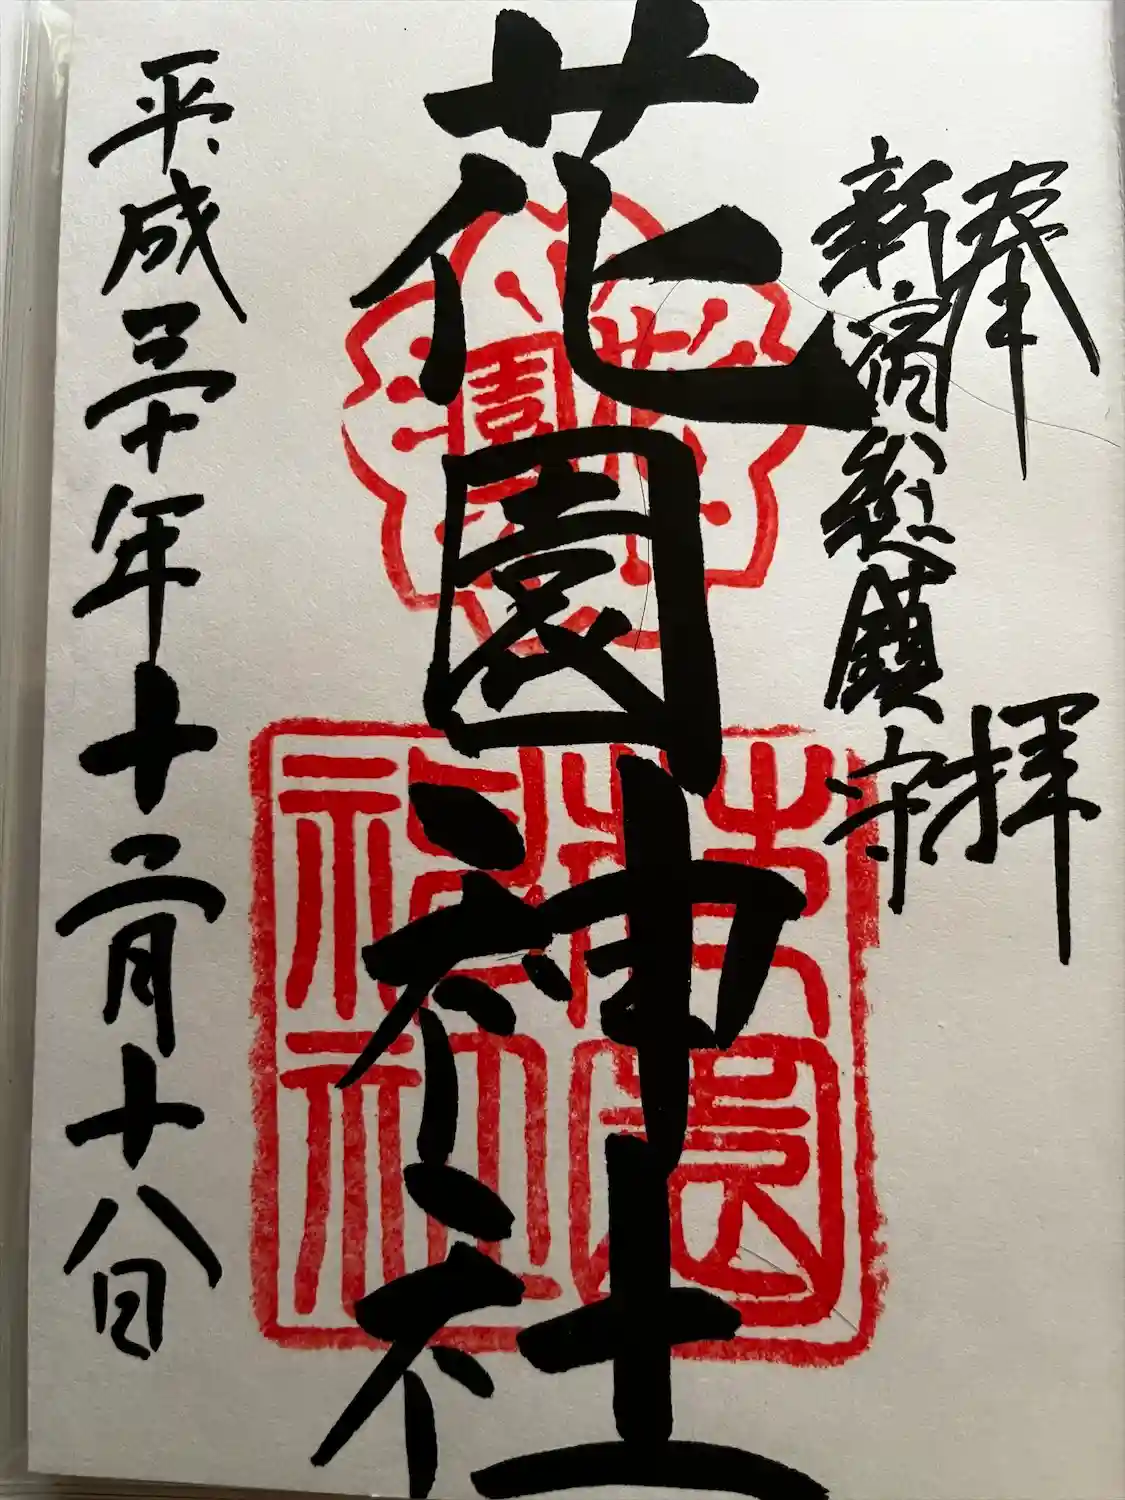 奉拝
新宿総鎮守
花園神社
平成三十年十二月十八日
花園
花園神社